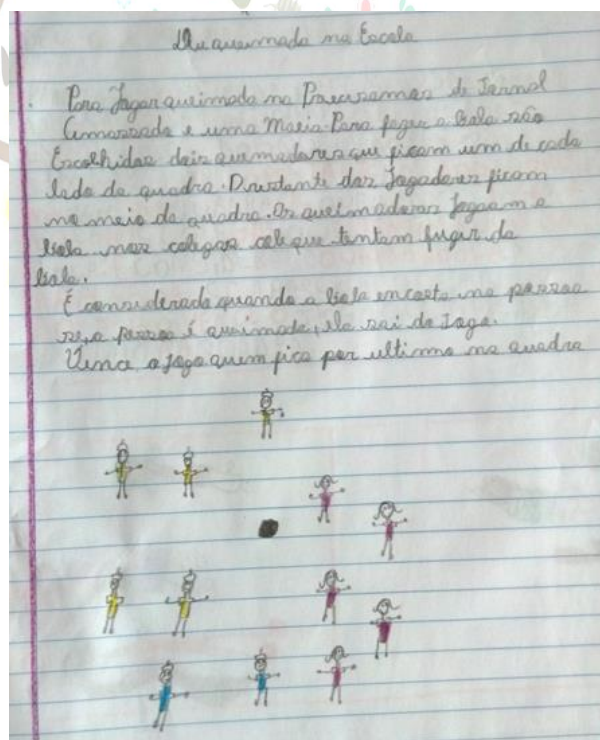 queimada na Escola
Para Jogar queimada na Precisamos de Jornal
Amassado e uma Meia Para fazer a bola são
Escolhidos dois queimadores que ficam um de cada
lado da quadra. O restante dos Jogadores ficam
no meio da quadra. Os queimadores Jogam a
bola nos colegas que tentam fugir da
bola.
É considerada quando a bola encosta na pessoa
pessoa é queimada, ela sai do Jogo.
Vence o Jogo quem fica por ultimo na quadra